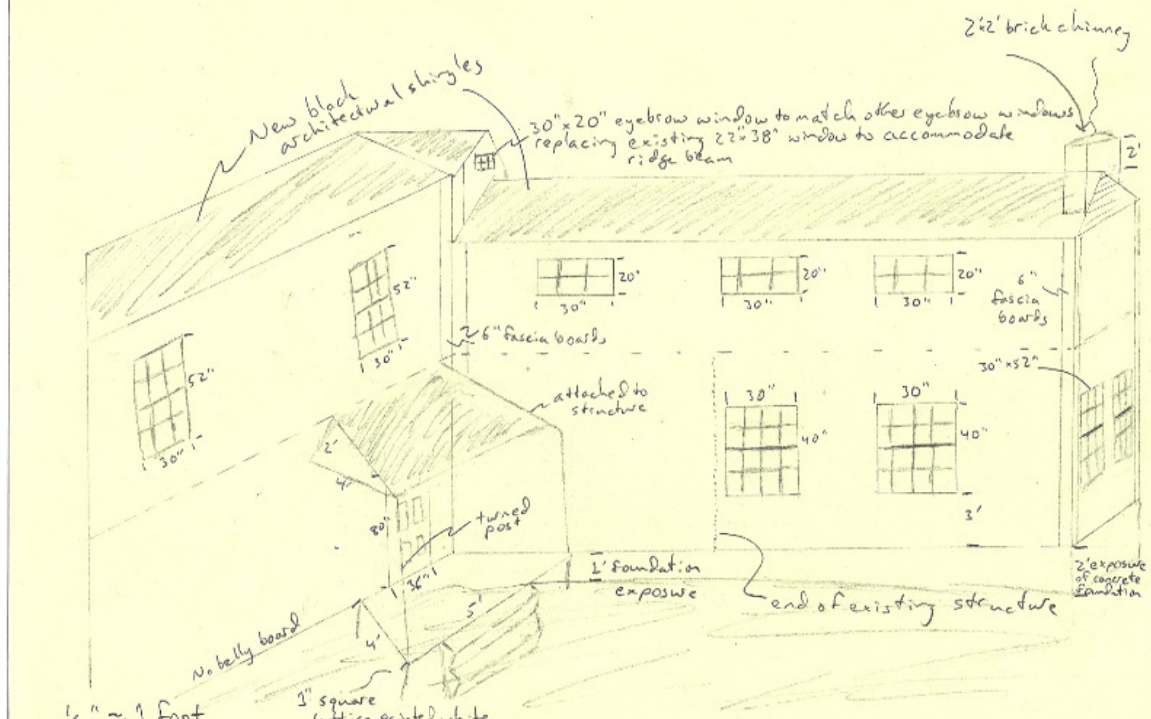 2'x2' brick chimney
New black
architectural shingles
30"x20" eyebrow window to match other eyebrow windows
replacing existing 22"x38" window to accommodate
ridge beam
2'
52"
30"
20'
30"
20"
30"
20"
30"
6"
fascia
boards
6" fascia boards
52"
30"
attached to
structure
30"x52"
30"
40"
30"
40"
3'
2'
4'
80"
turned
post
36"
1' foundation
exposure
end of existing structure
2' exposure
of concrete
foundation
No belly board
5'
4'
1" square
lattice painted white
1 foot